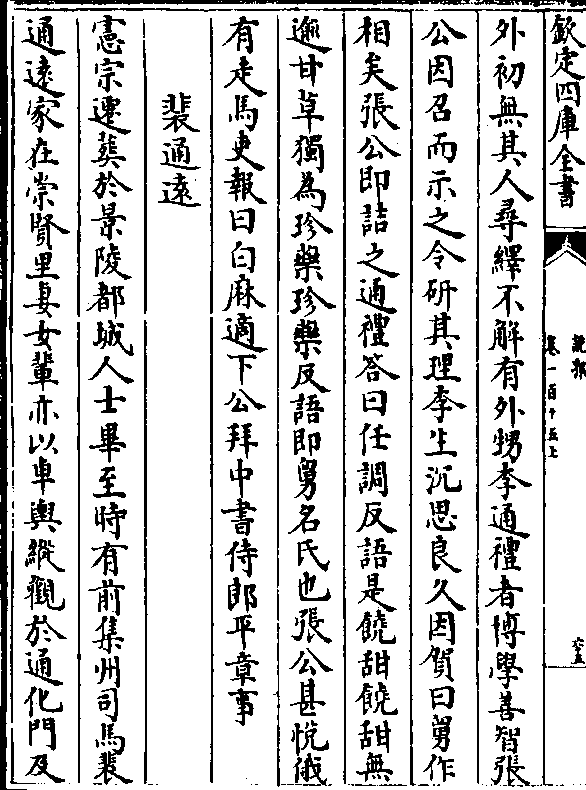 欽定四庫全書
說郛
卷一百十五上
六五
外初無其人尋繹不解有外甥李通禮者博學善智張
公因召而示之令研其理李生沉思良久因賀曰舅作
相矣張公即詰之通禮答曰任調反語是饒甜饒甜無
逾甘草獨為珍藥珍藥反語即舅名氏也張公甚悅俄
有走馬吏報曰白麻適下公拜中書侍郎平章事
裴通遠
憲宗遷葬於景陵都城人士畢至時有前集州司馬裴
通遠家在崇賢里妻女輩亦以車輿縱觀於通化門及